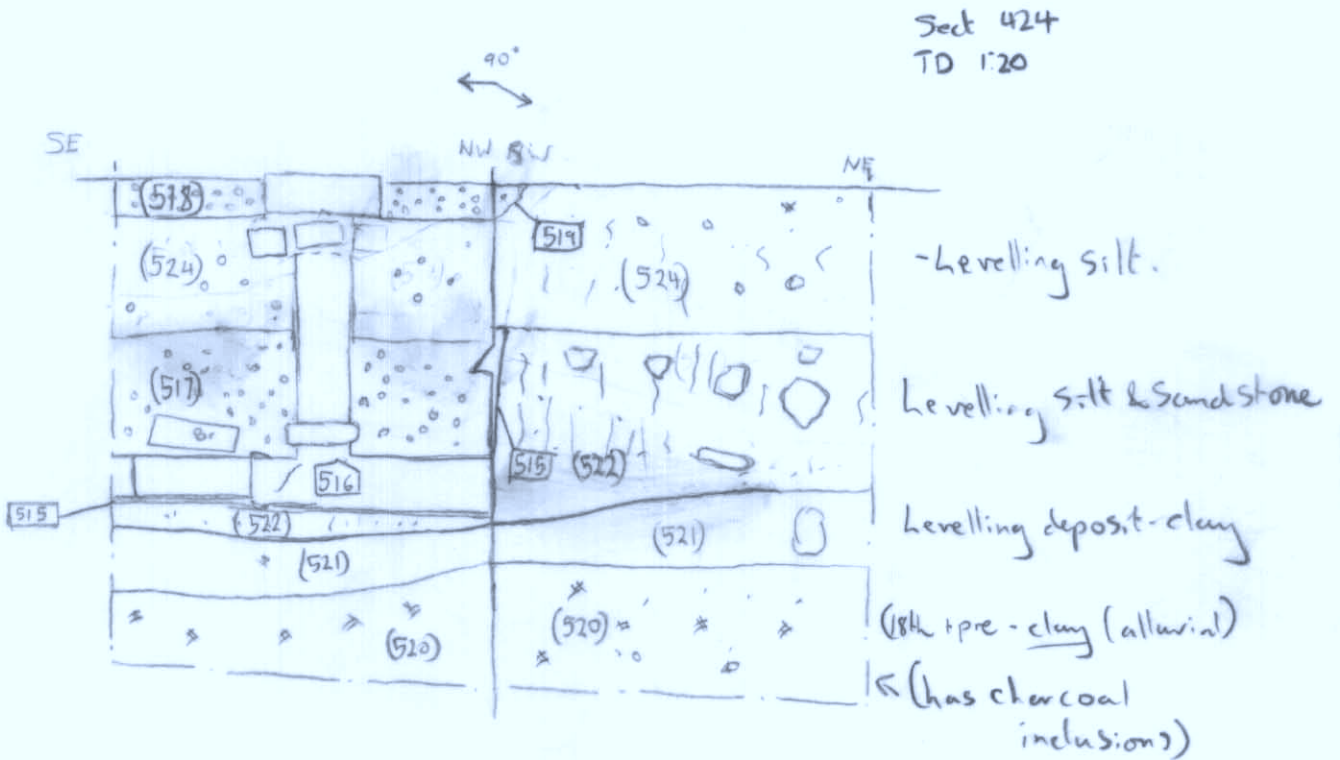 Sect 424
TD 1:20
90°
SE
NW SW
NE
(518)
519
(524)
(524)
-Levelling silt.
(517)
Br
Levelling silt & Sandstone
515
(522)
516
515
(522)
(521)
(521)
Levelling deposit-clay
(520)
(520)
(18th + pre - clay (alluvial)
(has charcoal
inclusions)